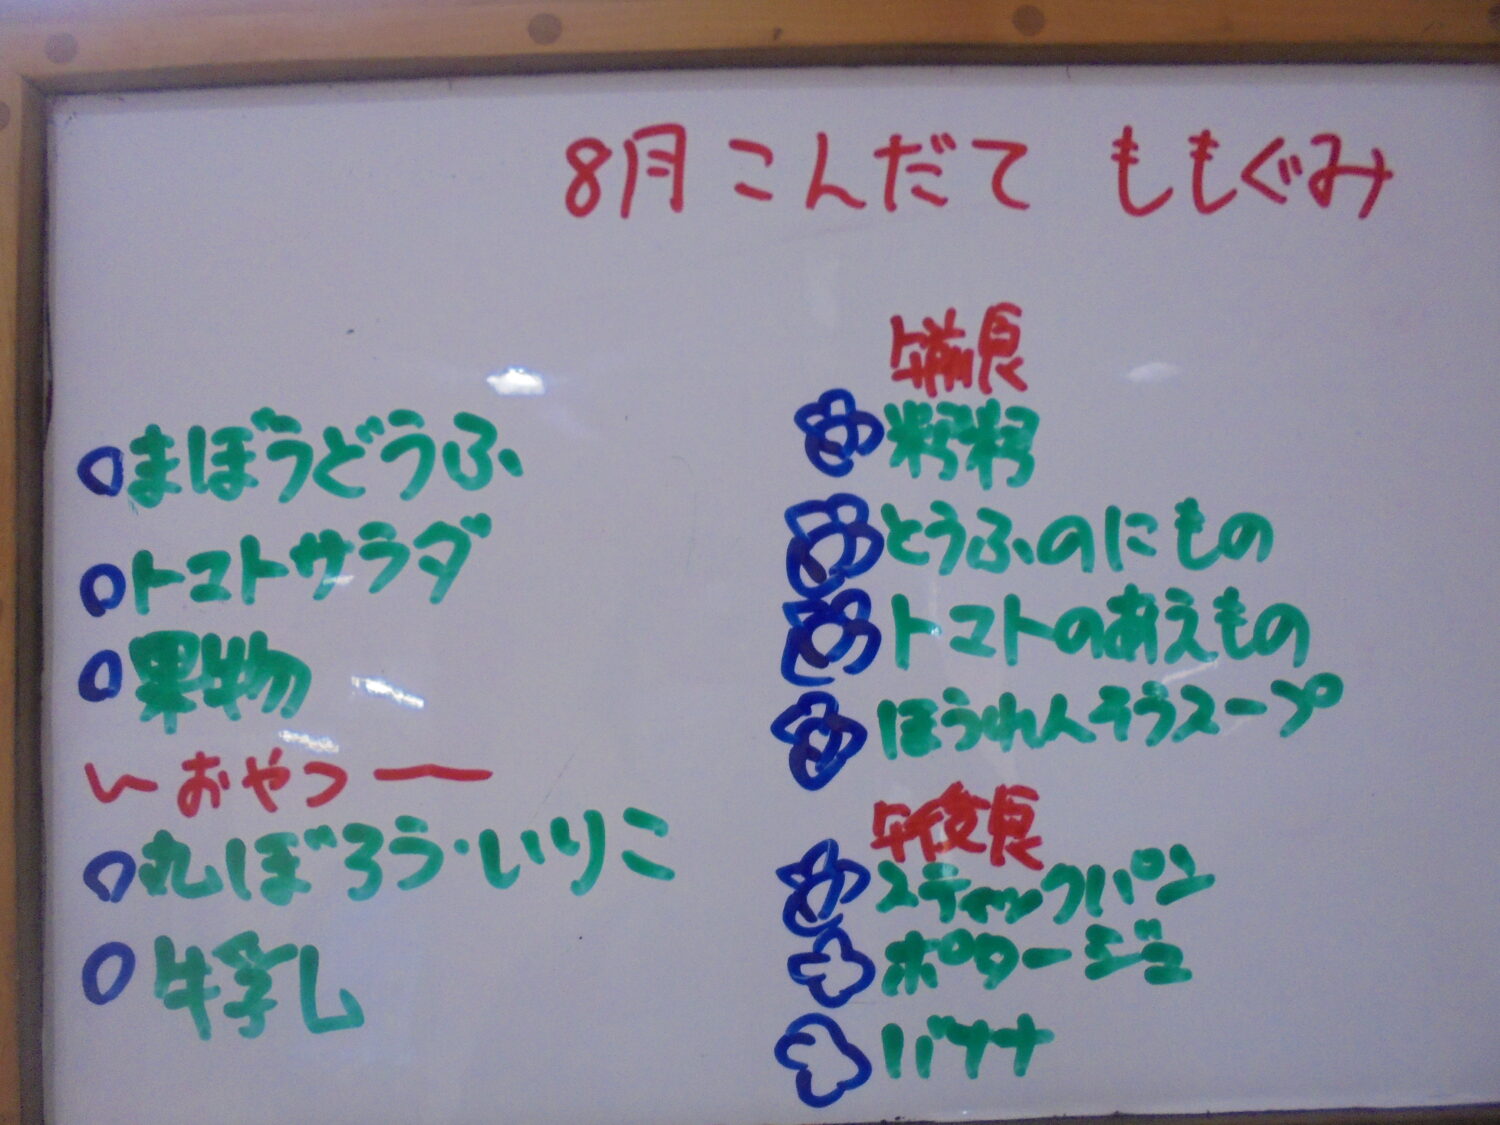 8月 こんだて ももぐみ
まぼうどうふ
トマトサラダ
果物
おやつ
丸ぼろう・いりこ
牛乳
午前食
とうふのにもの
トマトのあえもの
ほうれんそうスープ
午後食
スティックパン
ポタージュ
バナナ